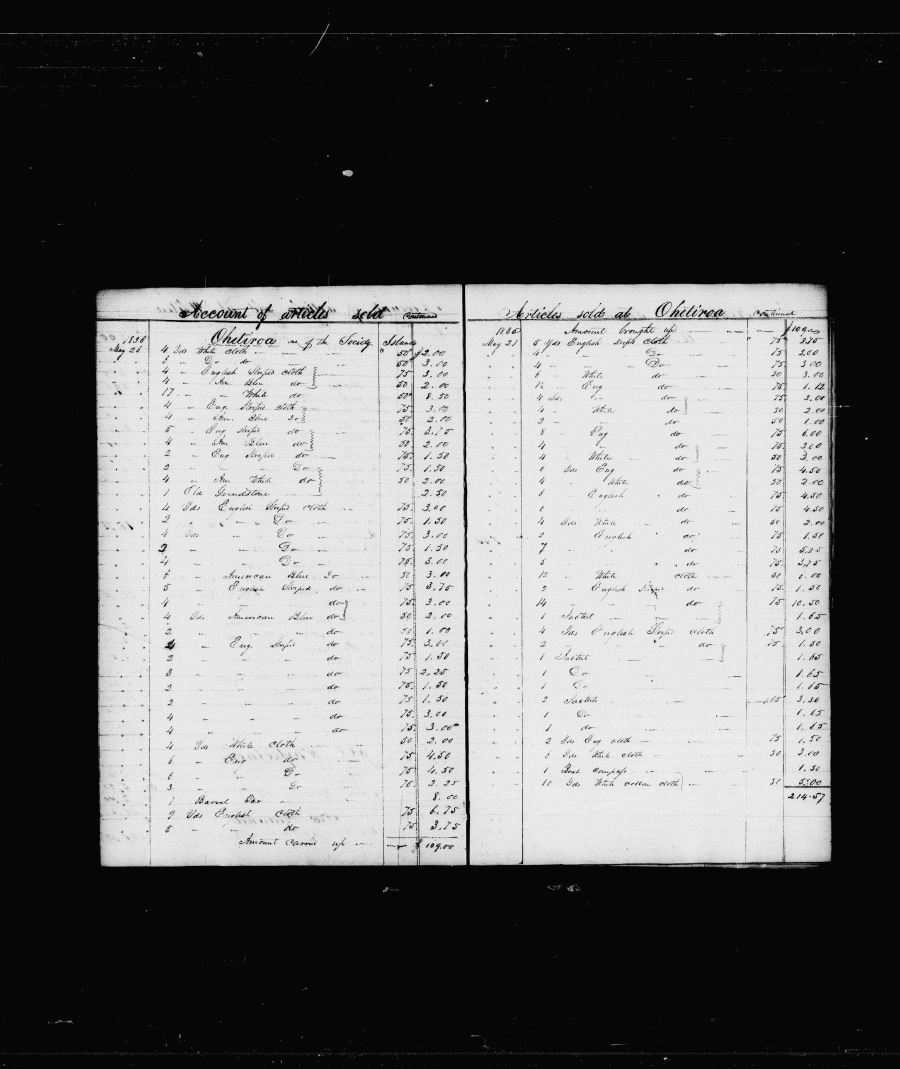 Account of articles sold Continued
Oheteroa one of the Society Islands
1835
May 21 4 Yds White cloth 50 $2.00
6 " Do do 50 3.00
4 " English Striped cloth 75 3.00
4 " Am. Blue do 50 2.00
17 " " White do 50 8.50
4 " Eng. Striped cloth 75 3.00
4 " Am. Blue Do 50 2.00
5 " Eng Striped do 75 3.75
4 " Am Blue do 50 2.00
2 " Eng Striped do 75 1.50
2 " " Do 75 1.50
4 " Am White do 50 2.00
1 Old Grindstone 2.50
4 Yds English Striped cloth 75 3.00
2 " " " Do 75 1.50
4 Yds " Do 75 3.00
2 " " Do 75 1.50
4 " " Do 75 3.00
6 " American Blue Do 50 3.00
5 " English Striped do 75 3.75
4 " " do 75 3.00
4 Yds American Blue do 50 2.00
2 " " do 50 1.00
4 " Eng. Striped do 75 3.00
2 " do 75 1.50
3 " do 75 2.25
2 " do 75 1.50
2 " do 75 1.50
4 " do 75 3.00
4 " do 75 3.00
4 Yds White cloth 50 2.00
6 " Eng do 75 4.50
6 " " Do 75 4.50
3 " " Do 75 2.25
1 Barrel Tar 8.00
9 Yds English Cloth 75 6.75
5 " " do 75 3.75
Amount carried up $109.00
Articles sold at Oheteroa Continued
1835 Amount brought up $109
May 21 5 Yds English Striped cloth 75 3.75
4 " Do 75 3.00
4 " " Do 75 3.00
6 " White do 50 3.00
1½ " Eng do 75 1.12
4 Yds " do 75 3.00
4 " White do 50 2.00
2 " do 50 1.00
8 " Eng do 75 6.00
4 " do 75 3.00
4 " White do 50 2.00
6 Yds Eng do 75 4.50
4 " White do 50 2.00
6 " English do 75 4.50
6 " do 75 4.50
4 Yds White do 50 2.00
2 English do 75 1.50
7 " do 75 5.25
5 " do 75 3.75
12 " White cloth 50 6.00
2 " English Striped do 75 1.50
14 " " do 75 10.50
1 1.65
4 Yds English Striped cloth 75 3.00
2 " " do 75 1.50
1 1.65
1 Do 1.65
1 Do 1.65
2 1.65 3.30
1 Do 1.65
1 do 1.65
2 Yds Eng cloth 75 1.50
6 Yds White cloth 50 3.00
1 Boat compass 1.50
10 Yds White cotton cloth 50 5.00
214.57